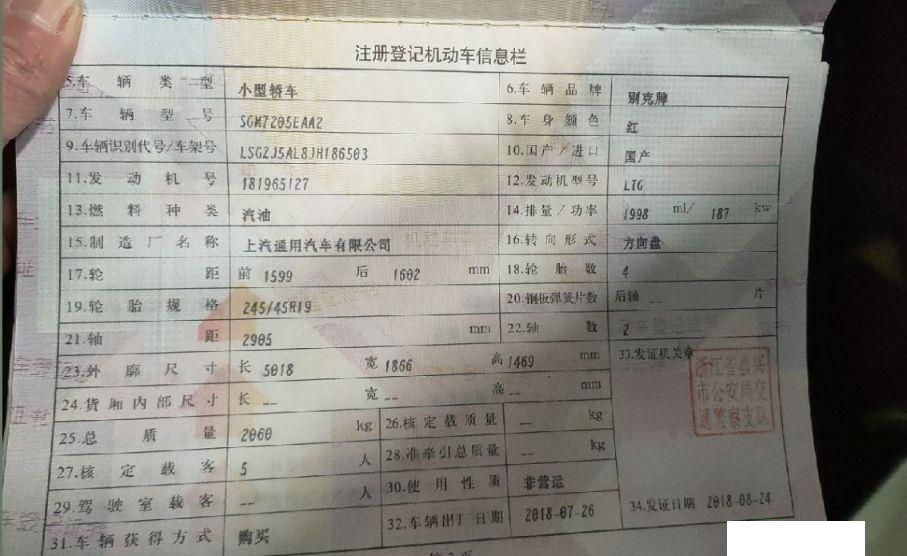 注册登记机动车信息栏
5.车辆类型 小型轿车 6.车辆品牌 别克牌
7.车辆型号 SGM7205EAA2 8.车身颜色 红
9.车辆识别代号/车架号 LSGZJ5AL8JH186503 10.国产/进口 国产
11.发动机号 181965127 12.发动机型号 LTG
13.燃料种类 汽油 14.排量/功率 1998 ml/ 187 kw
15.制造厂名称 上汽通用汽车有限公司 16.转向形式 方向盘
17.轮距 前 1599 后 1602 mm 18.轮胎数 4
19.轮胎规格 245/45R19 20.钢板弹簧片数 后轴 -- 片
21.轴距 2905 mm 22.轴数 2
23.外廓尺寸 长 5018 宽 1866 高 1469 mm 33.发证机关章
24.货厢内部尺寸 长 -- 宽 -- 高 -- mm
浙江省嘉兴
市公安局交
通警察支队
25.总质量 2060 kg 26.核定载质量 -- kg
27.核定载客 5 人 28.准牵引总质量 -- kg
29.驾驶室载客 -- 人 30.使用性质 非营运
31.车辆获得方式 购买 32.车辆出厂日期 2018-07-26 34.发证日期 2018-08-24